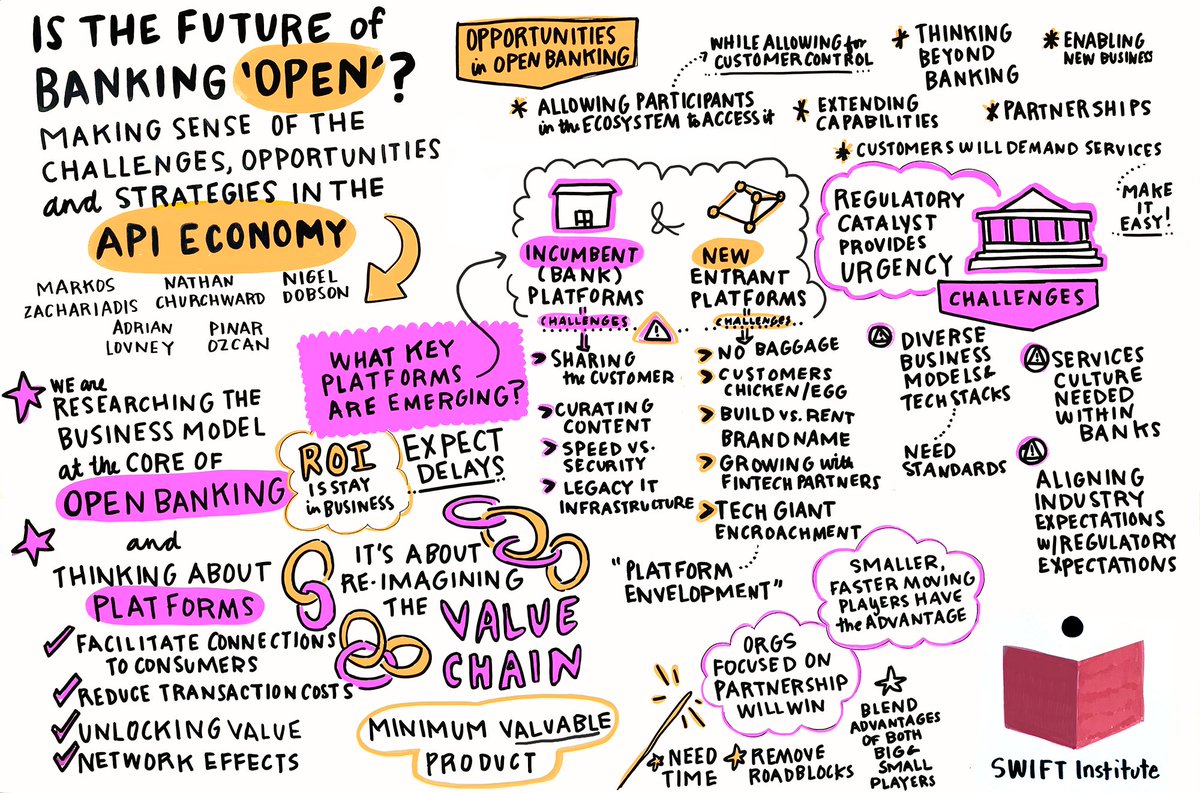 IS THE FUTURE of
BANKING 'OPEN'?
MAKING SENSE OF THE
CHALLENGES, OPPORTUNITIES
and STRATEGIES IN THE
API ECONOMY
MARKOS
ZACHARIADIS
NATHAN
CHURCHWARD
NIGEL
DOBSON
ADRIAN
LOVNEY
PINAR
OZCAN
WE ARE
RESEARCHING THE
BUSINESS MODEL
at the CORE OF
OPEN BANKING
and
THINKING ABOUT
PLATFORMS
FACILITATE CONNECTIONS
TO CONSUMERS
REDUCE TRANSACTION COSTS
UNLOCKING VALUE
NETWORK EFFECTS
WHAT KEY
PLATFORMS
ARE EMERGING?
ROI
IS STAY
in BUSINESS
EXPECT
DELAYS
IT'S ABOUT
RE-IMAGINING
THE VALUE
CHAIN
MINIMUM VALUABLE
PRODUCT
OPPORTUNITIES
in OPEN BANKING
WHILE ALLOWING for
CUSTOMER CONTROL
* ALLOWING PARTICIPANTS
in the ECOSYSTEM to ACCESS it
* THINKING
BEYOND
BANKING
* ENABLING
NEW BUSINESS
* EXTENDING
CAPABILITIES
* PARTNERSHIPS
* CUSTOMERS WILL DEMAND SERVICES
MAKE
IT
EASY!
&
INCUMBENT
(BANK)
PLATFORMS
CHALLENGES
> SHARING
the CUSTOMER
> CURATING
CONTENT
> SPEED VS.
SECURITY
> LEGACY IT
INFRASTRUCTURE
NEW
ENTRANT
PLATFORMS
CHALLENGES
> NO BAGGAGE
> CUSTOMERS
CHICKEN/EGG
> BUILD VS. RENT
BRAND NAME
> GROWING with
FINTECH PARTNERS
> TECH GIANT
ENCROACHMENT
"PLATFORM
ENVELOPMENT"
REGULATORY
CATALYST
PROVIDES
URGENCY
CHALLENGES
DIVERSE
BUSINESS
MODELS &
TECH STACKS
NEED
STANDARDS
SERVICES
CULTURE
NEEDED
WITHIN
BANKS
ALIGNING
INDUSTRY
EXPECTATIONS
W/REGULATORY
EXPECTATIONS
SMALLER,
FASTER MOVING
PLAYERS HAVE
the ADVANTAGE
ORGS
FOCUSED ON
PARTNERSHIP
WILL WIN
NEED
TIME
REMOVE
ROADBLOCKS
BLEND
ADVANTAGES
OF BOTH
BIG &
SMALL
PLAYERS
SWIFT Institute